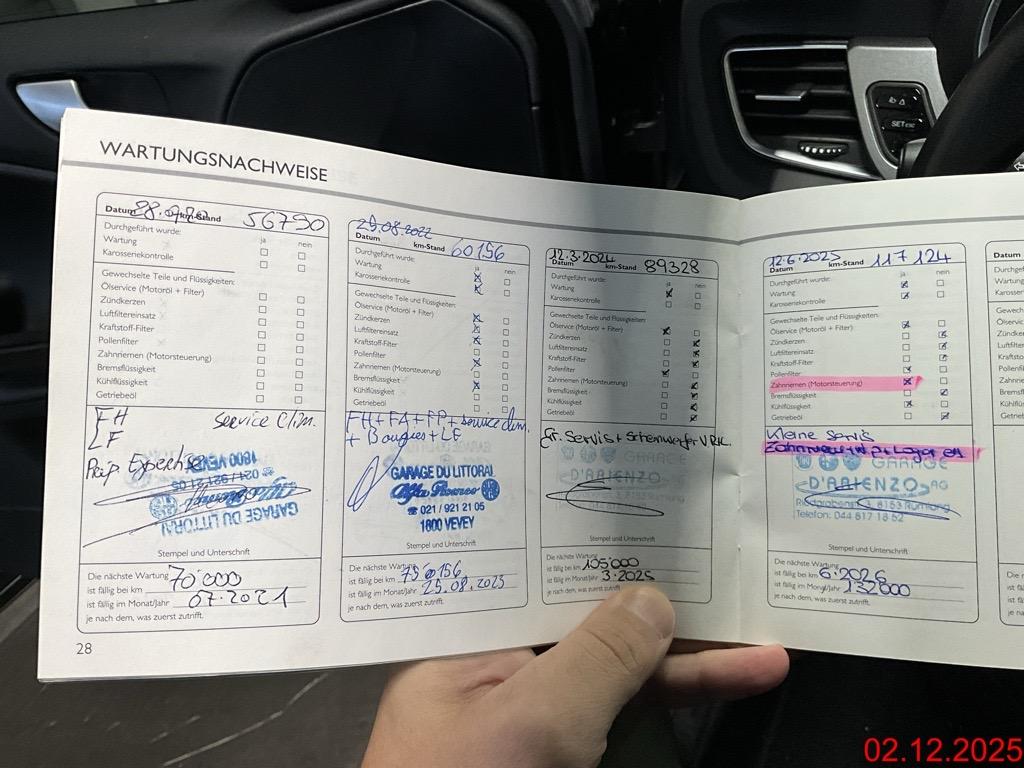 WARTUNGSNACHWEISE
Datum km-Stand 56790
Durchgeführt wurde:
ja nein
Wartung
Karosseriekontrolle
Gewechselte Teile und Flüssigkeiten:
Ölservice (Motoröl + Filter)
Zündkerzen
Luftfiltereinsatz
Kraftstoff-Filter
Pollenfilter
Zahnriemen (Motorsteuerung)
Bremsflüssigkeit
Kühlflüssigkeit
Getriebeöl
FH Service Clim.
LF
1800 VEVEY
021 / 921 21 05
GARAGE DU LITTORAL
Stempel und Unterschrift
Die nächste Wartung
ist fällig bei km 70'000
ist fällig im Monat/Jahr 07.2021
je nach dem, was zuerst zutrifft.
28
25.08.2022
Datum km-Stand 60156
Durchgeführt wurde:
ja nein
Wartung
Karosseriekontrolle
Gewechselte Teile und Flüssigkeiten:
Ölservice (Motoröl + Filter)
Zündkerzen
Luftfiltereinsatz
Kraftstoff-Filter
Pollenfilter
Zahnriemen (Motorsteuerung)
Bremsflüssigkeit
Kühlflüssigkeit
Getriebeöl
FH + FA + FP + service clim.
+ Bougies + LF
GARAGE DU LITTORAL
Alfa Romeo
☎ 021 / 921 21 05
1800 VEVEY
Stempel und Unterschrift
Die nächste Wartung
ist fällig bei km 75'156
ist fällig im Monat/Jahr 25.08.2023
je nach dem, was zuerst zutrifft.
12.3.2024
Datum km-Stand 89328
Durchgeführt wurde:
ja nein
Wartung
Karosseriekontrolle
Gewechselte Teile und Flüssigkeiten:
Ölservice (Motoröl + Filter)
Zündkerzen
Luftfiltereinsatz
Kraftstoff-Filter
Pollenfilter
Zahnriemen (Motorsteuerung)
Bremsflüssigkeit
Kühlflüssigkeit
Getriebeöl
Gr. Servis + Scheinwerfer V R+L
GARAGE
D'ARIENZO
Stempel und Unterschrift
Die nächste Wartung
ist fällig bei km 105'000
ist fällig im Monat/Jahr 3.2025
je nach dem, was zuerst zutrifft.
12.6.2025
Datum km-Stand 117 124
Durchgeführt wurde:
ja nein
Wartung
Karosseriekontrolle
Gewechselte Teile und Flüssigkeiten:
Ölservice (Motoröl + Filter)
Zündkerzen
Luftfiltereinsatz
Kraftstoff-Filter
Pollenfilter
Zahnriemen (Motorsteuerung)
Bremsflüssigkeit
Kühlflüssigkeit
Getriebeöl
Kleine Servis
Zahnriemen + WP +
GARAGE
D'ARIENZO AG
Riedgrabenstr. 3, 8153 Rümlang
Telefon: 044 817 18 52
Stempel und Unterschrift
Die nächste Wartung
ist fällig bei km 6.2026
ist fällig im Monat/Jahr 132'000
je nach dem, was zuerst zutrifft.
Datum
SET
02.12.2025